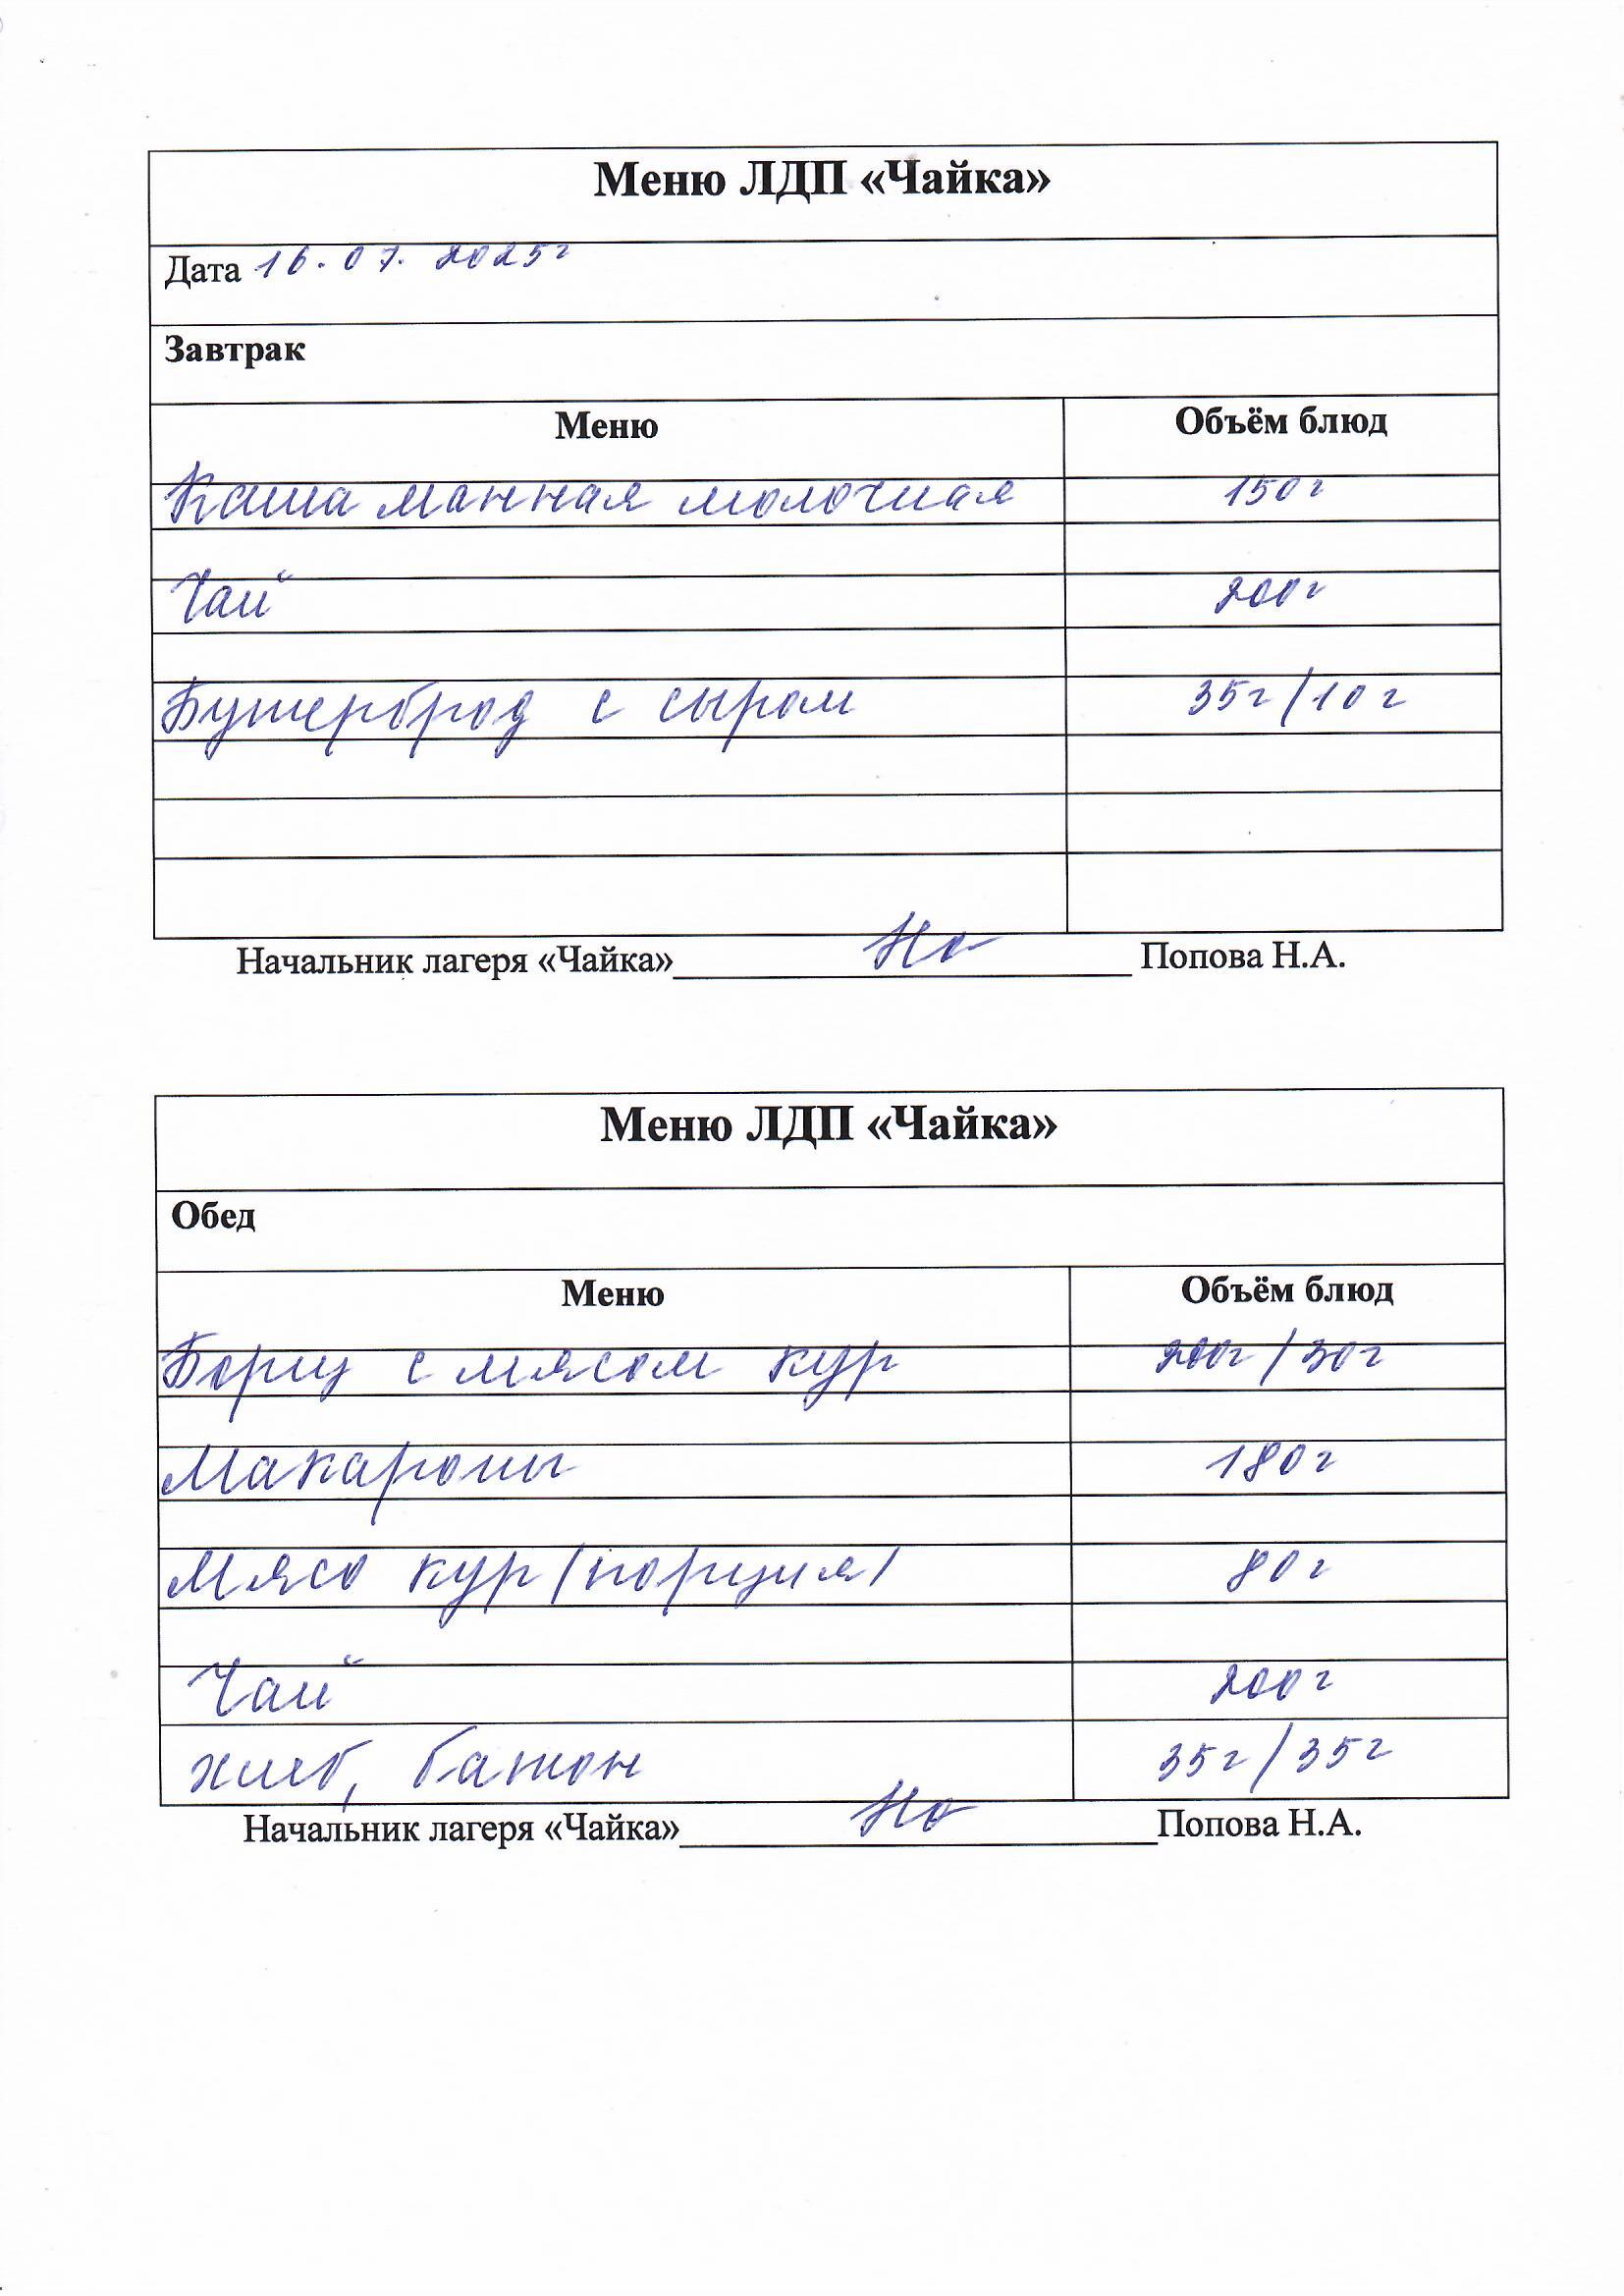 Меню ЛДП «Чайка»
Дата 16.07.2025г
Завтрак
Меню Объём блюд
Каша манная молочная 150г
Чай 200г
Бутерброд с сыром 35г/10г
Начальник лагеря «Чайка» Попова Н.А.
Меню ЛДП «Чайка»
Обед
Меню Объём блюд
Борщ с мясом кур 200г/30г
Макароны 180г
Мясо кур /порция/ 80г
Чай 200г
хлеб, батон 35г/35г
Начальник лагеря «Чайка» Попова Н.А.